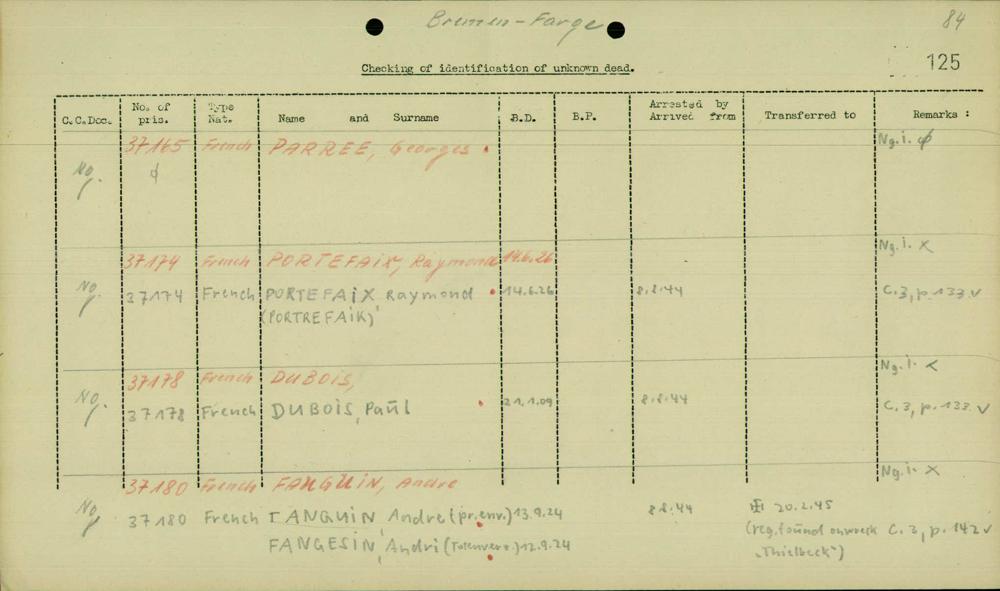 Bremen-Farge
84
125
Checking of identification of unknown dead.
C.C.Doc. No. of pris. Type Nat. Name and Surname B.D. B.P. Arrested by Arrived from Transferred to Remarks :
37165 French PARREE, Georges Ng.i. ϕ
No. ϕ
37174 French PORTEFAiX, Raymond 14.6.26 Ng.i. X
No. 37174 French PORTEFAiX Raymond 14.6.26 8.8.44 C.3, p.133 v
(PORTREFAiK)
37178 French DUBOiS, Ng.i. X
No. 37178 French DUBOiS, Paul 21.1.09 8.8.44 C.3, p.133 v
37180 French FANGUiN, Andre Ng.i. X
No. 37180 French TANGUiN Andre (pr.env.) 13.9.24 8.8.44 20.2.45
(reg. found on wreck C.3, p.142 v
FANGESiN, Andri 12.9.24 "Thielbeck")